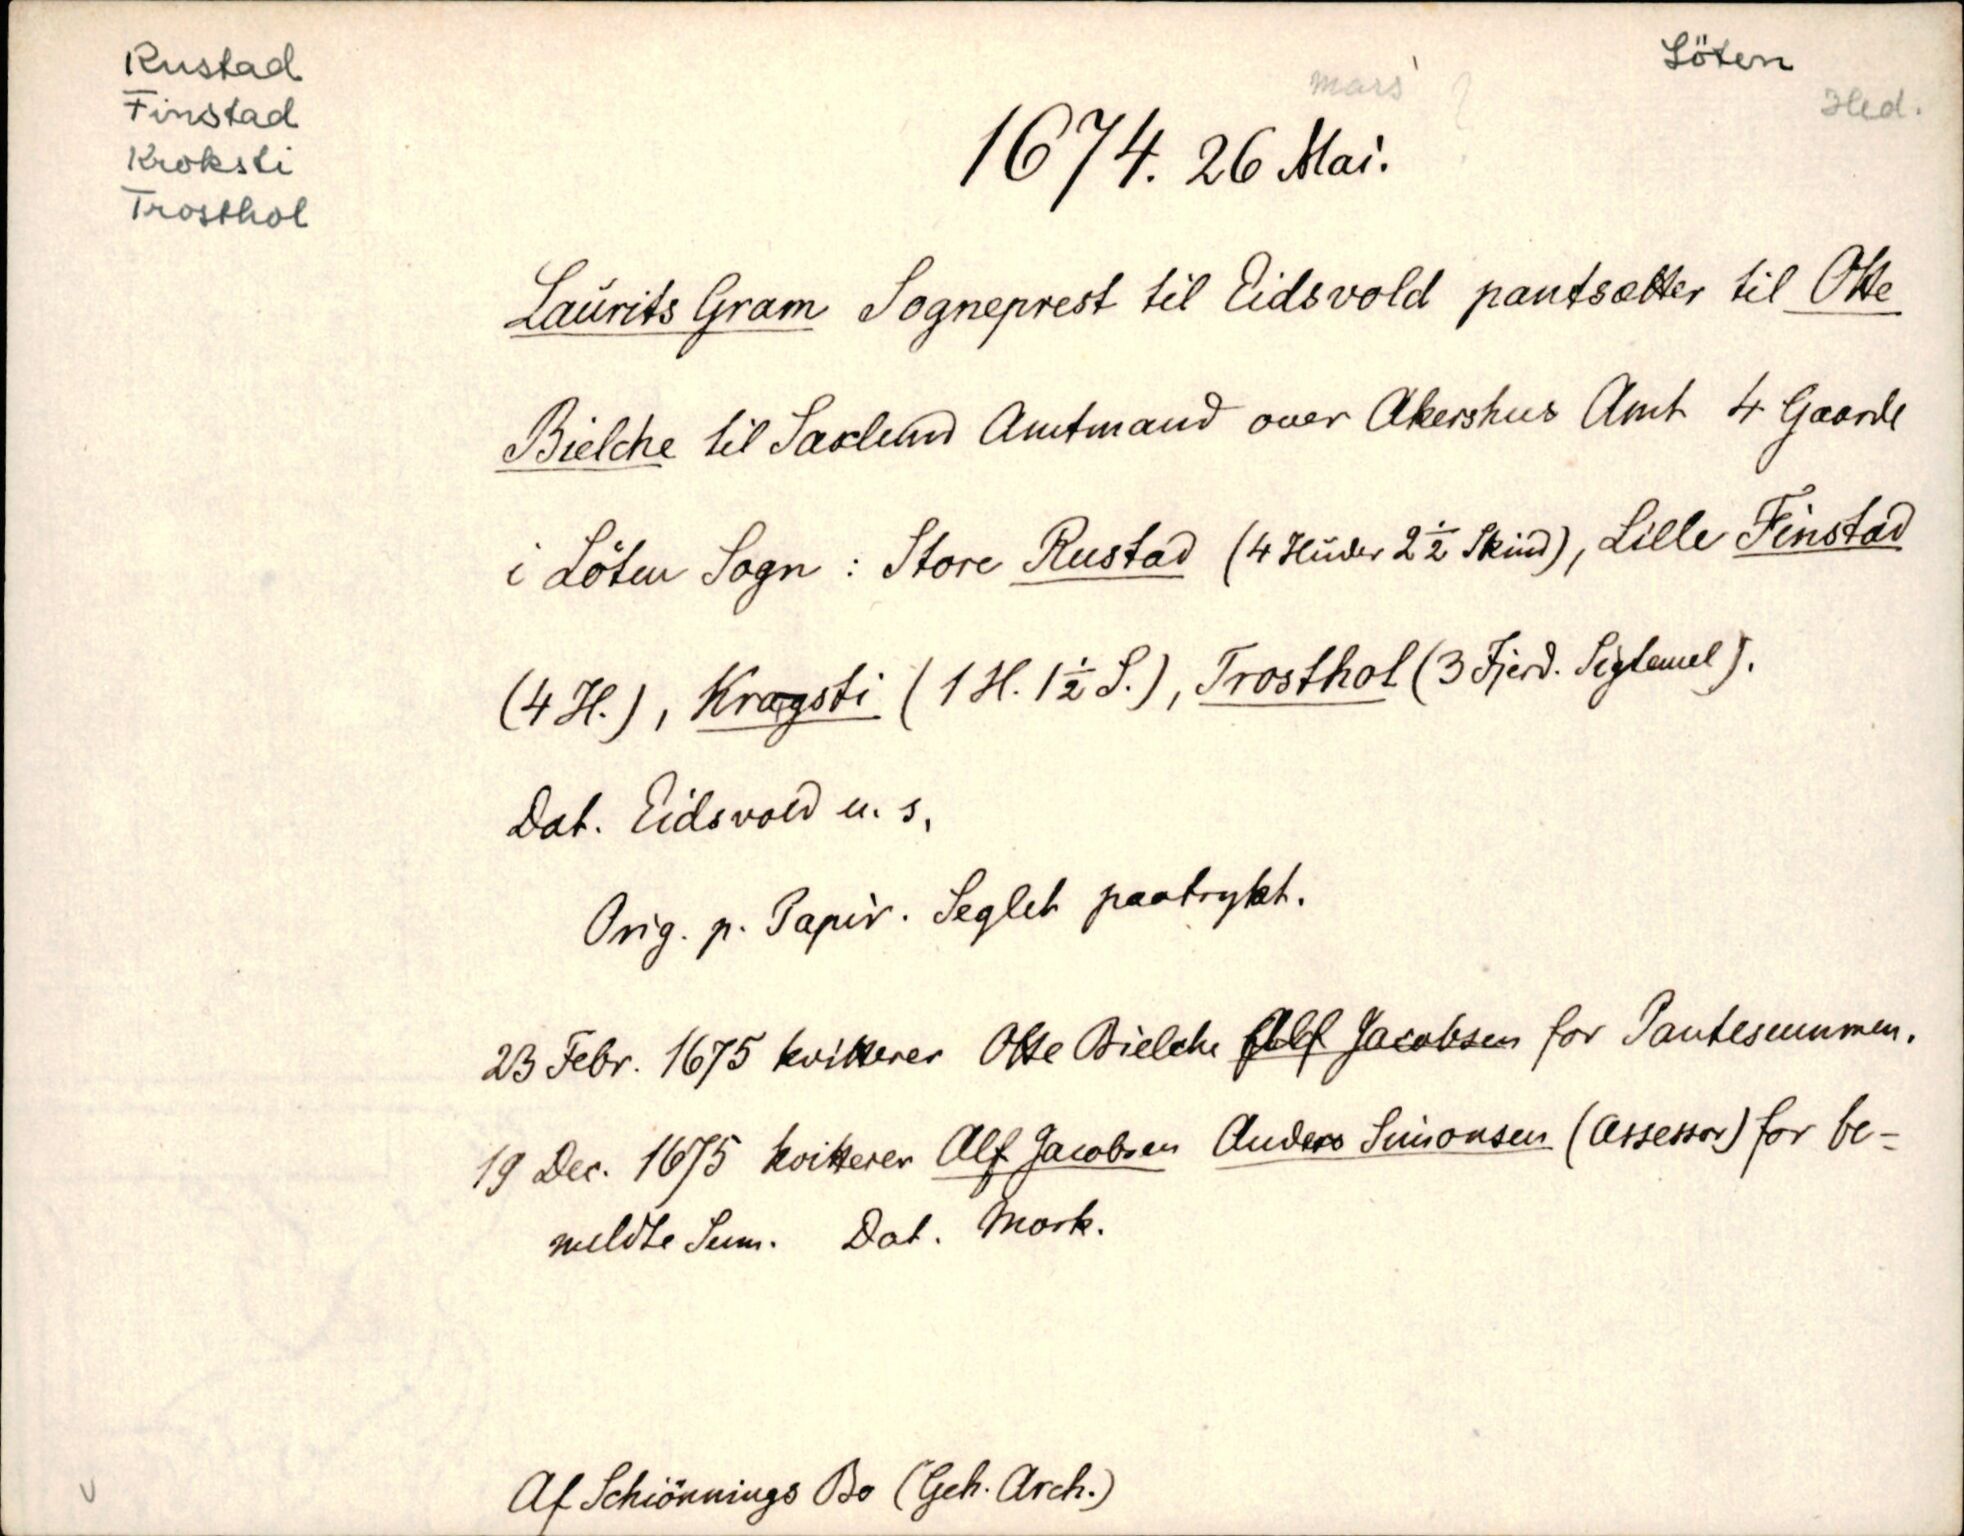 Rustad
Finstad
Kroksti
Trosthol
Löten
Hed.
mars ?
1674. 26 Mai.
Laurits Gram Sogneprest til Eidsvold pantsætter til Otte
Bielche til Saxlund Amtmand over Akershus Amt 4 Gaarde
i Löten Sogn : Store Rustad (4 Huder 2 1/2 Skind), Lille Finstad
(4 H.), Kragsti (1 H. 1 1/2 S.), Trosthol (3 Fjerd. Sigtemel).
Dat. Eidsvold u. s.
Orig. p. Papir. Seglet paatrykt.
23 Febr. 1675 kvitterer Otte Bielche Alf Jacobsen for Pantesummen.
19 Dec. 1675 kvitterer Alf Jacobsen Anders Simonsen (Assessor) for be-
meldte Sum. Dat. Mork.
Af Schiönnings Bo (Geh. Arch.)
v